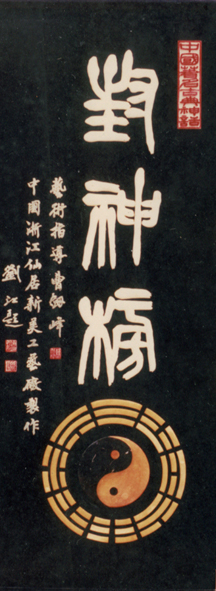 中國著名古典神話
封神榜
藝術指導
中国浙江仙居新美工藝廠製作
劉江題